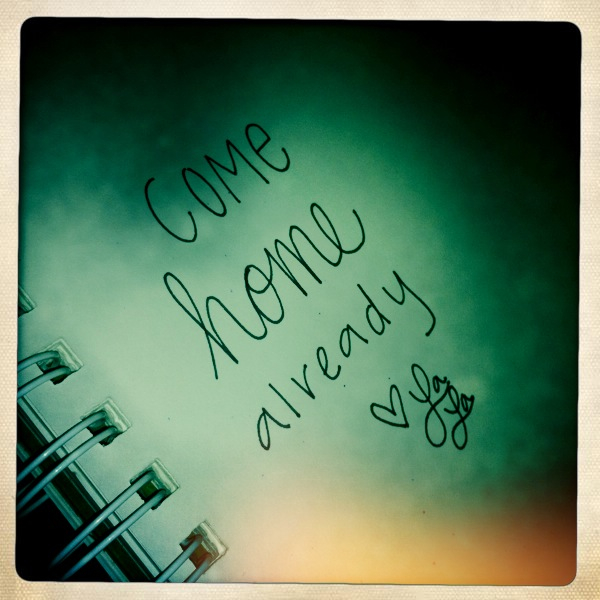 come
home
already
♡ LaLa